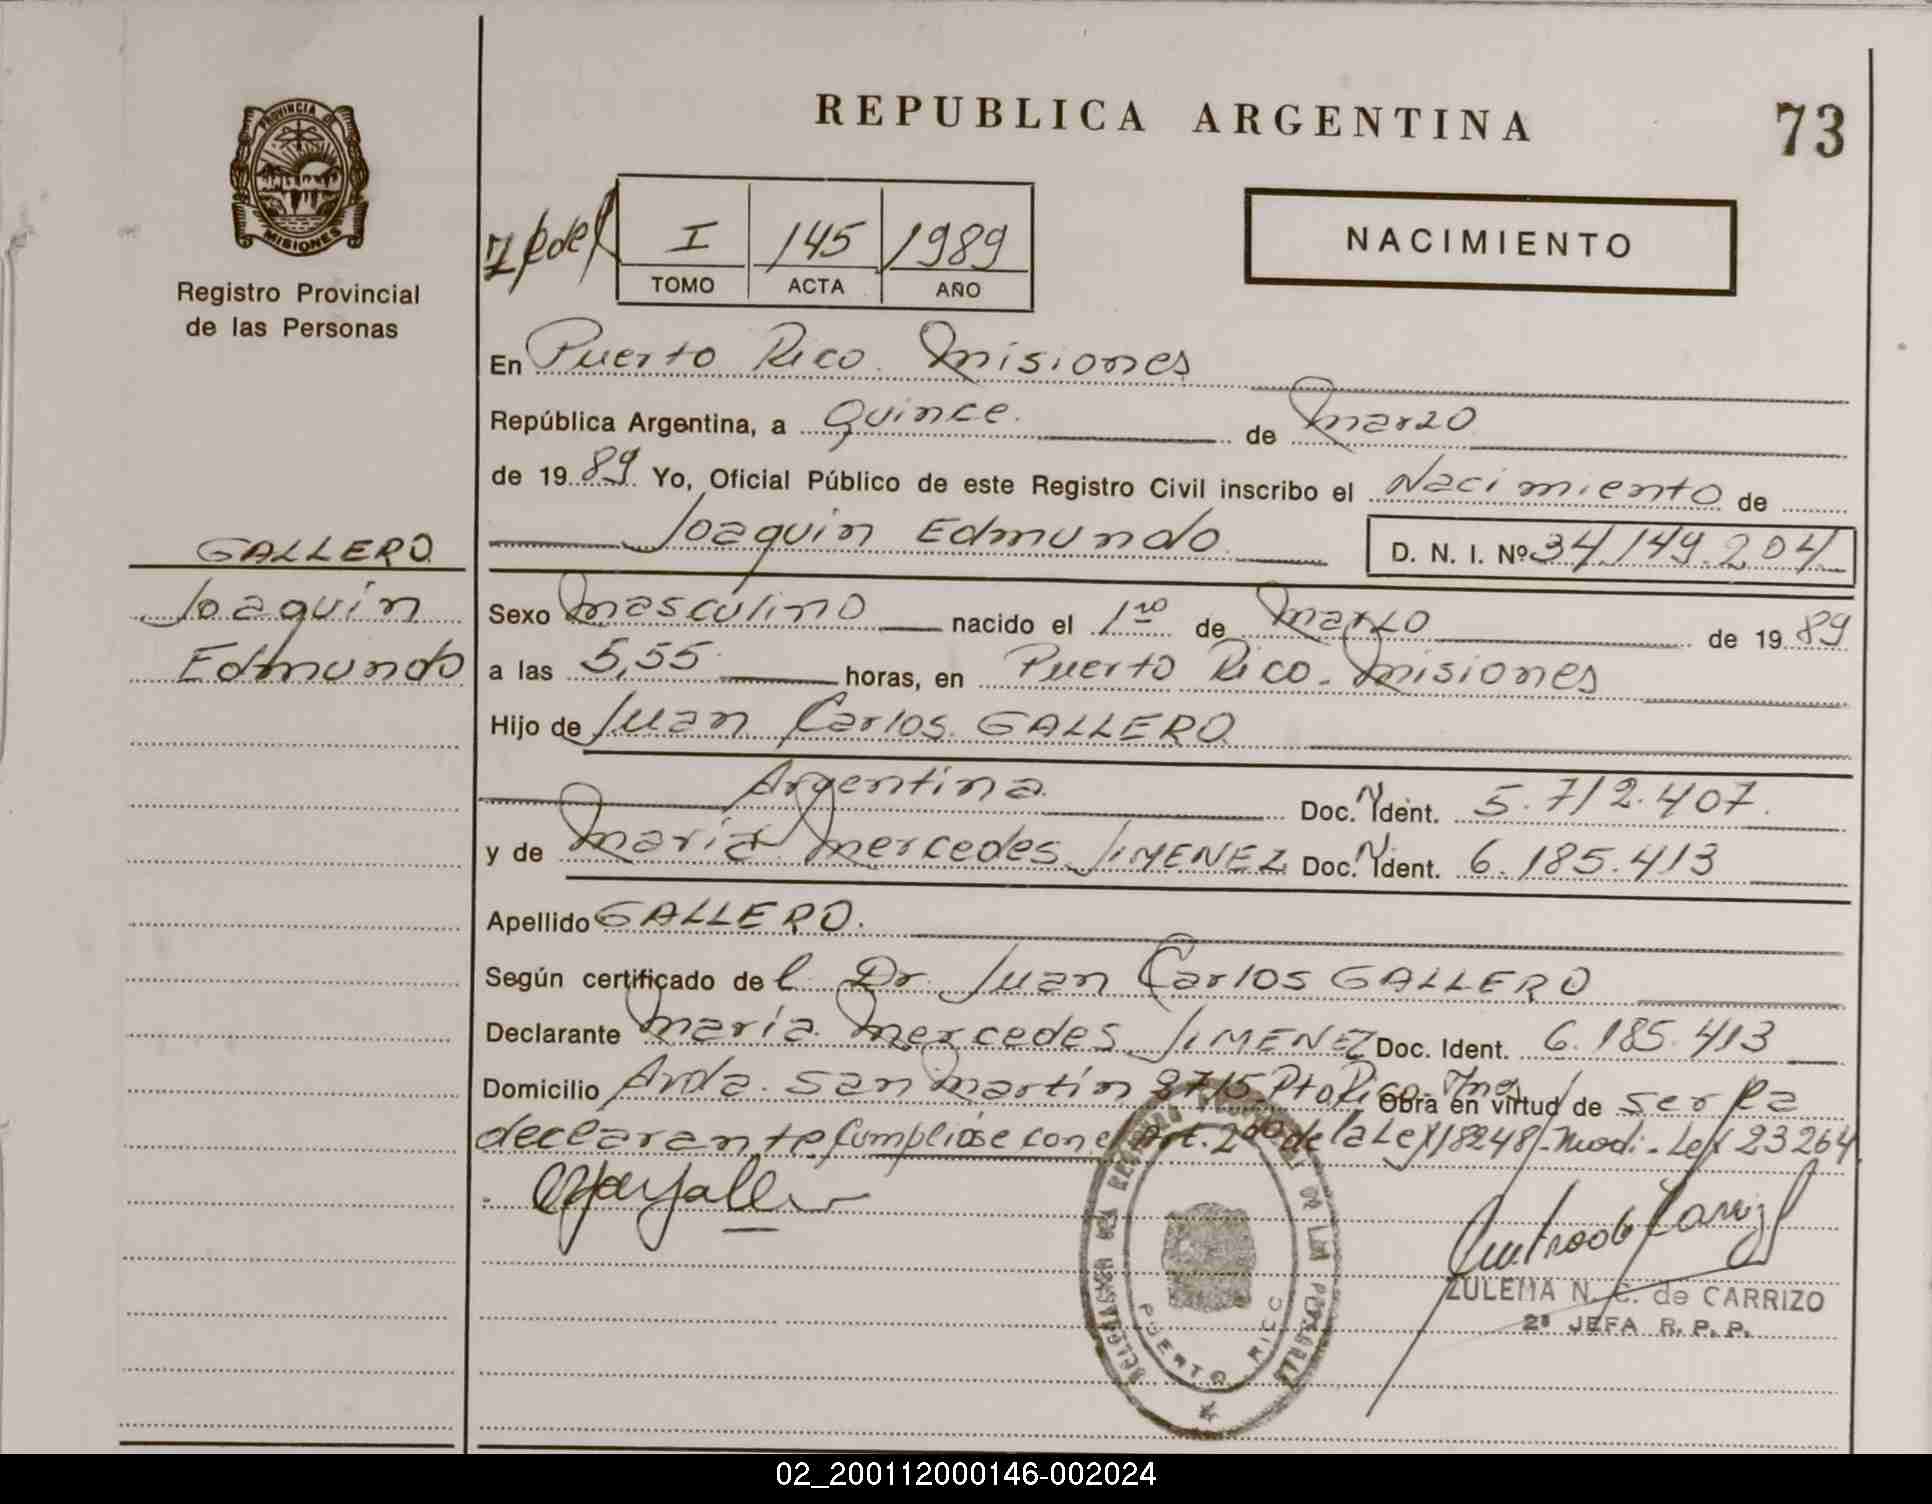 PROVINCIA DE
MISIONES
Registro Provincial
de las Personas
REPUBLICA ARGENTINA
73
I 145 1989
TOMO ACTA AÑO
NACIMIENTO
En Puerto Rico. Misiones
República Argentina, a Quince. de Marzo
de 1989 Yo, Oficial Público de este Registro Civil inscribo el Nacimiento de
Joaquin Edmundo
D. N. I. Nº 34.149.204
GALLERO
Joaquín
Edmundo
Sexo Masculino nacido el 1ro de Marzo de 1989
a las 5,55 horas, en Puerto Rico - Misiones
Hijo de Juan Carlos GALLERO
Argentina Doc. N Ident. 5.712.407.
y de María Mercedes JIMENEZ Doc. N Ident. 6.185.413
Apellido GALLERO.
Según certificado del Dr. Juan Carlos GALLERO
Declarante María Mercedes JIMENEZ Doc. Ident. 6.185.413
Domicilio Avda. San Martín Pto Rico Obra en virtud de ser la
declarante Cumplióse con el Art. 2do de la Ley 18248 - Modi. Ley 23264
PUERTO RICO
ZULEMA N. C. de CARRIZO
2ª JEFA R. P. P.
02_200112000146-002024